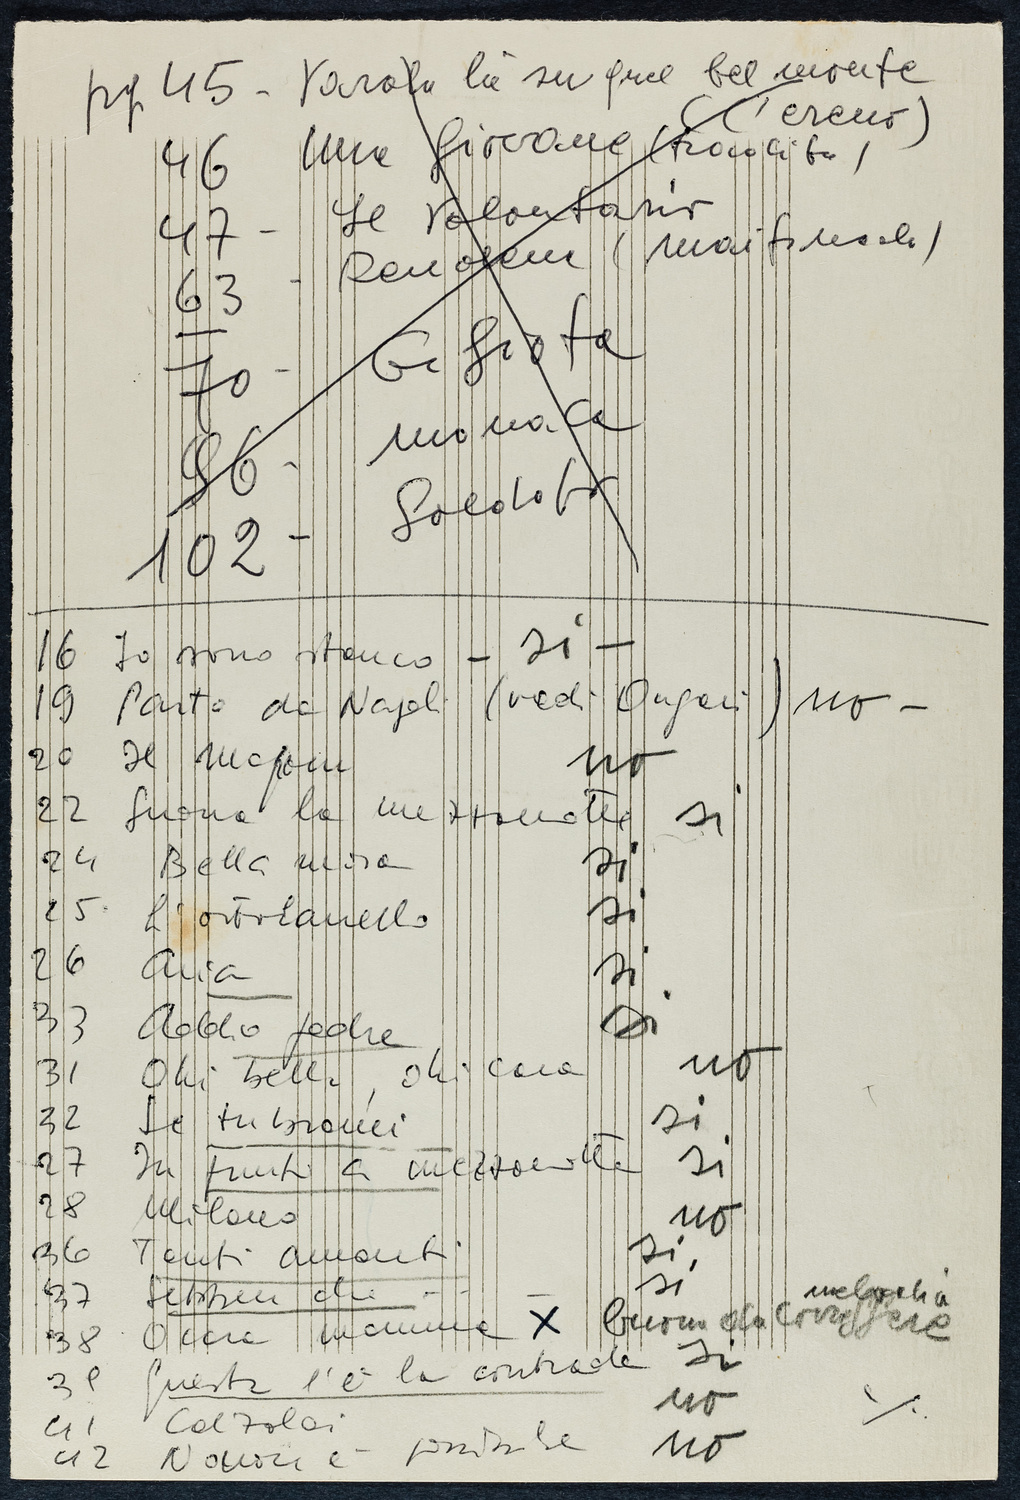 pg 45 - là su quel bel monte
(L'eremo)
46 Una Giovane (tradita)
47 - Il Volontario
63 - (mai
70 - Gigiota
96 - monaca
102 - Soldato
16 Io sono stanco - si -
19 Parto da Napoli (vedi Ungari) no -
20 Il no
22 Suona la mezzanotte si
24 Bella mora si
25. L'ortolanello si
26 Aria si
33 Addio padre si
31 Ohi bella, ohi cara no
32 Le si
27 In punto a mezzanotte si
28 Milano no
36 Tanti amanti si
37 Sebben che - - - si
melodia
38 mamma X buona da correggere
39 Questa l'è la contrada si
41 Calzolai no
42 è possibile no